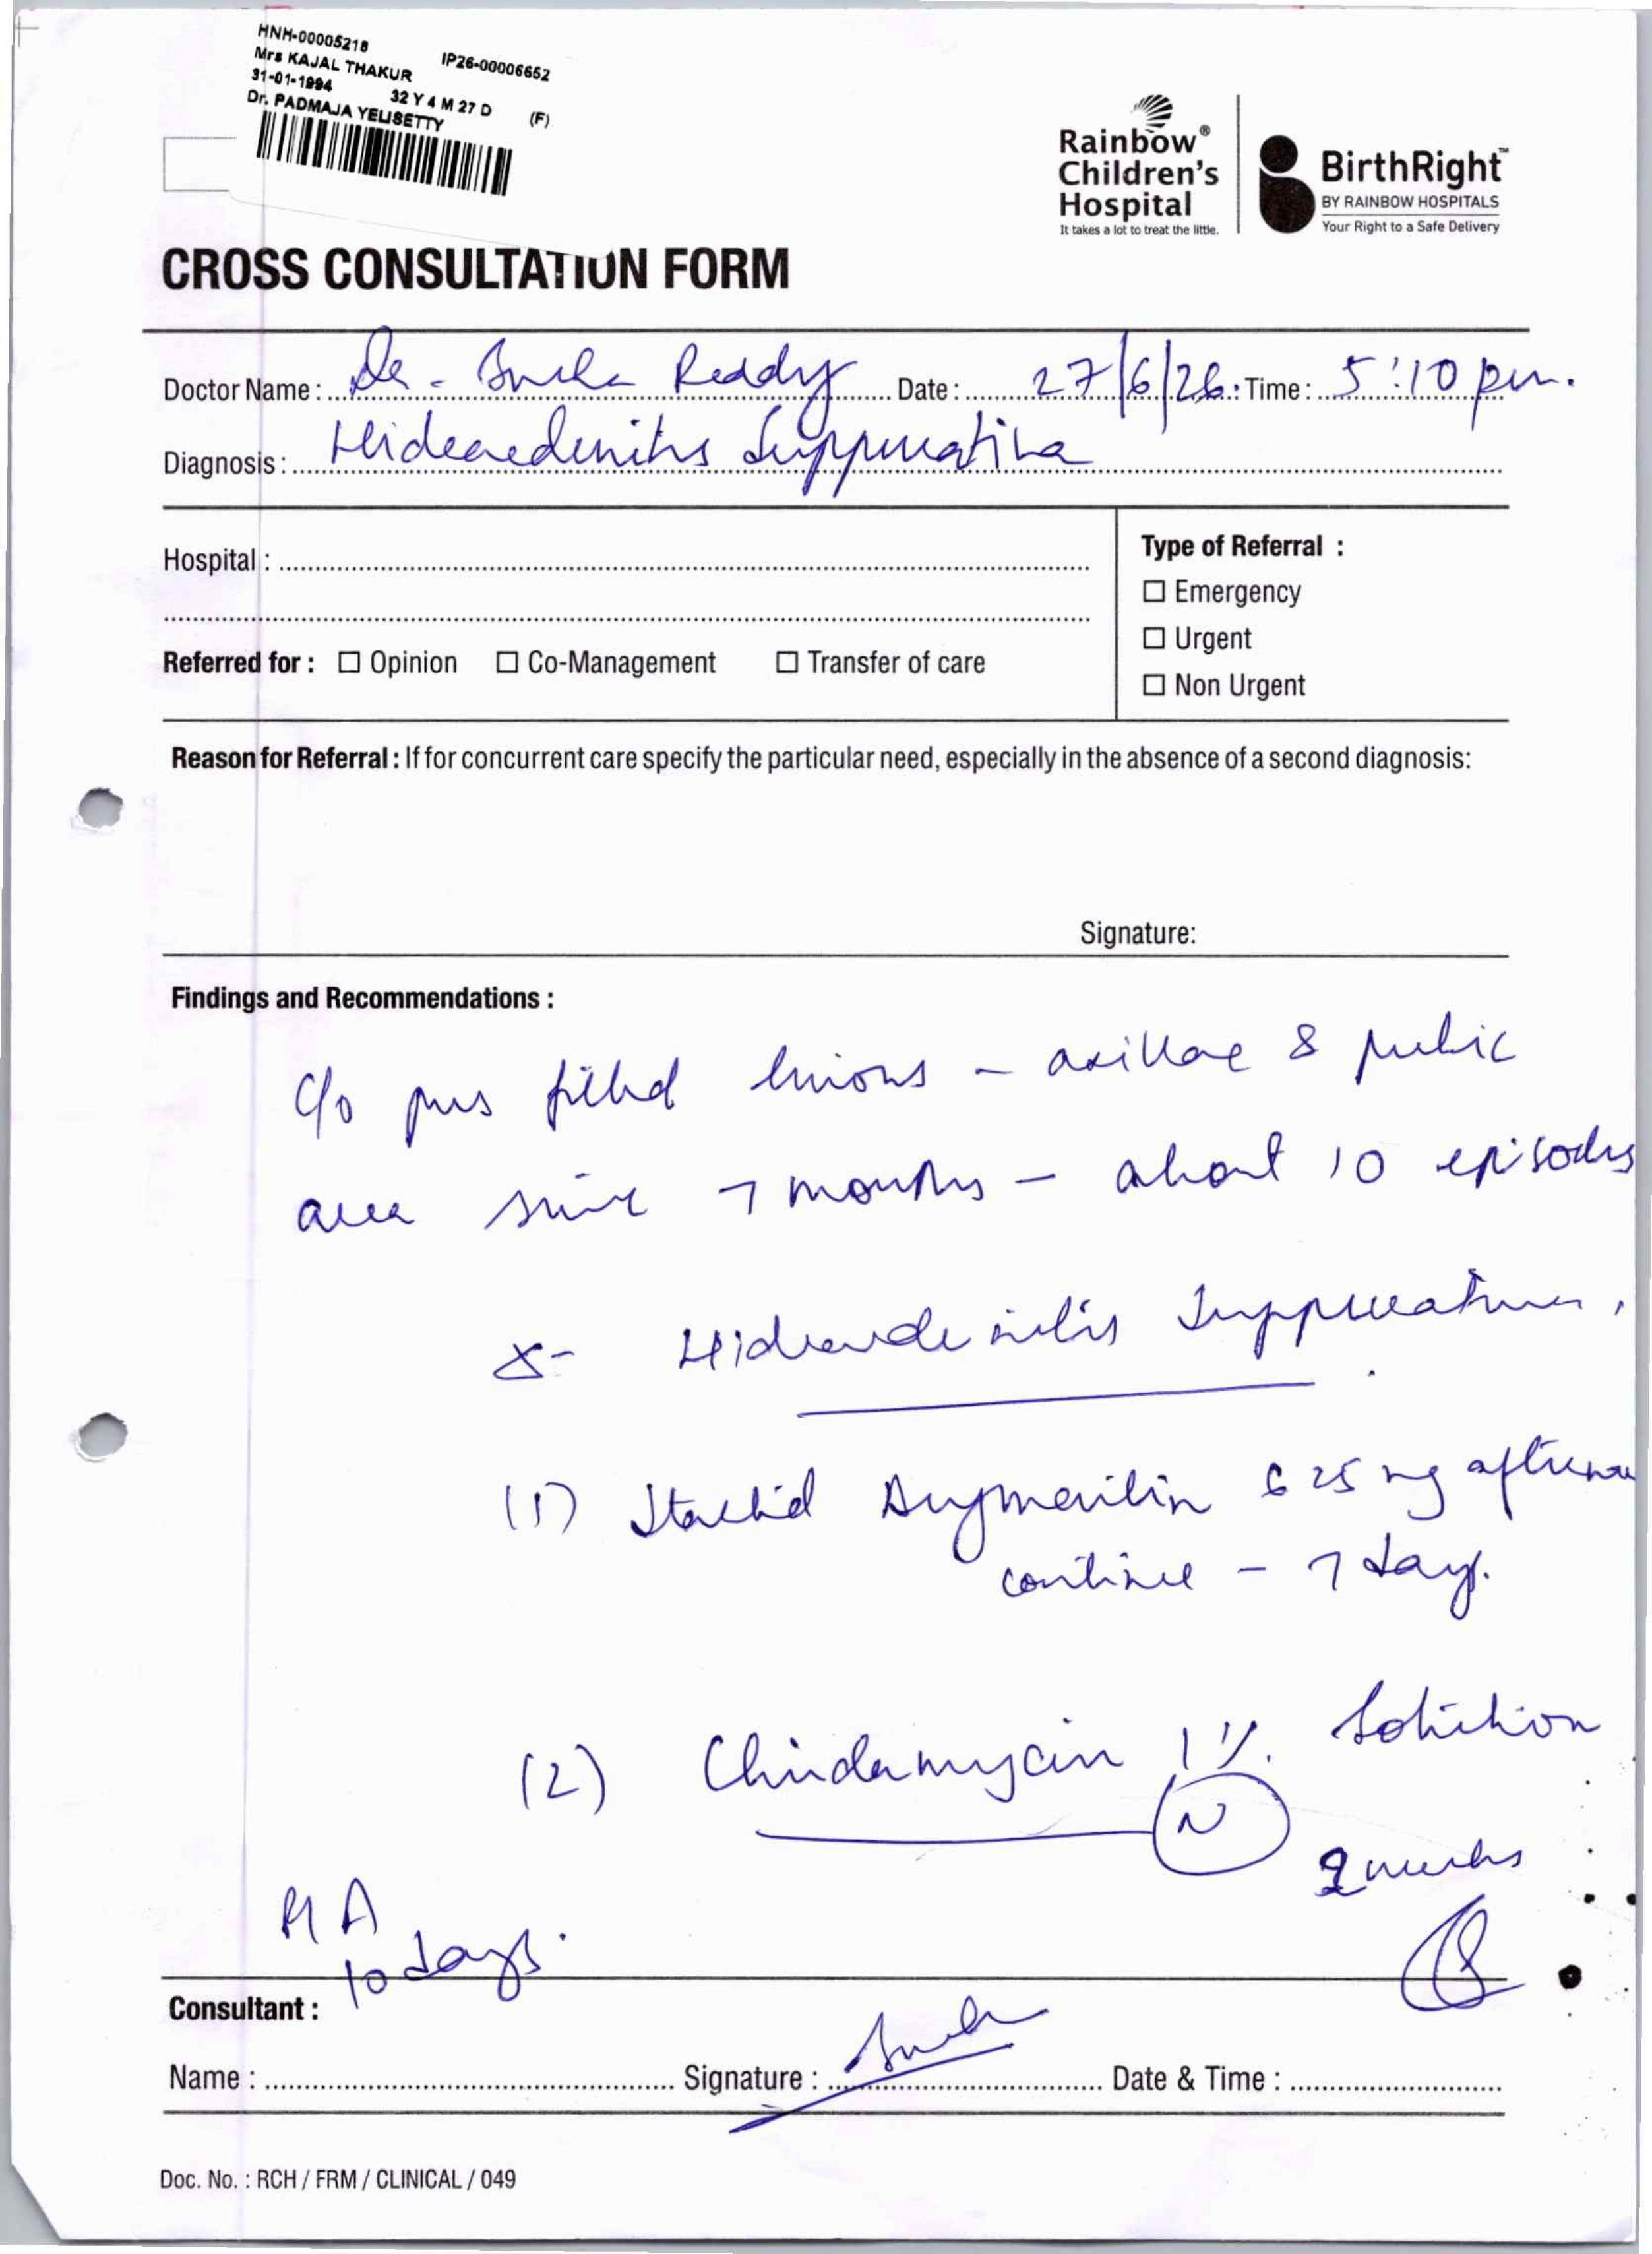 HNH-00005218
IP26-00006652
Mrs KAJAL THAKUR
31-01-1994 32 Y 4 M 27 D (F)
Dr. PADMAJA YELISETTY
Rainbow®
Children's
Hospital
It takes a lot to treat the little.
BirthRight™
BY RAINBOW HOSPITALS
Your Right to a Safe Delivery
CROSS CONSULTATION FORM
Doctor Name : Dr. Reddy Date : 27/6/26 Time : 5:10 pm.
Diagnosis : Hidearedinitis Suppurativa
Hospital :
Type of Referral :
☐ Emergency
☐ Urgent
☐ Non Urgent
Referred for : ☐ Opinion ☐ Co-Management ☐ Transfer of care
Reason for Referral : If for concurrent care specify the particular need, especially in the absence of a second diagnosis:
Signature:
Findings and Recommendations :
C/o pus filled lesions - axillae & pubic
area since 7 months - about 10 episodes
Hidradenitis Suppurativa.
(1) Started Augmentin 625 mg
continue - 7 days.
(2) Clindamycin 1%. Solution
N
2 weeks
10 days.
Consultant :
Name : Signature : Date & Time :
Doc. No. : RCH / FRM / CLINICAL / 049